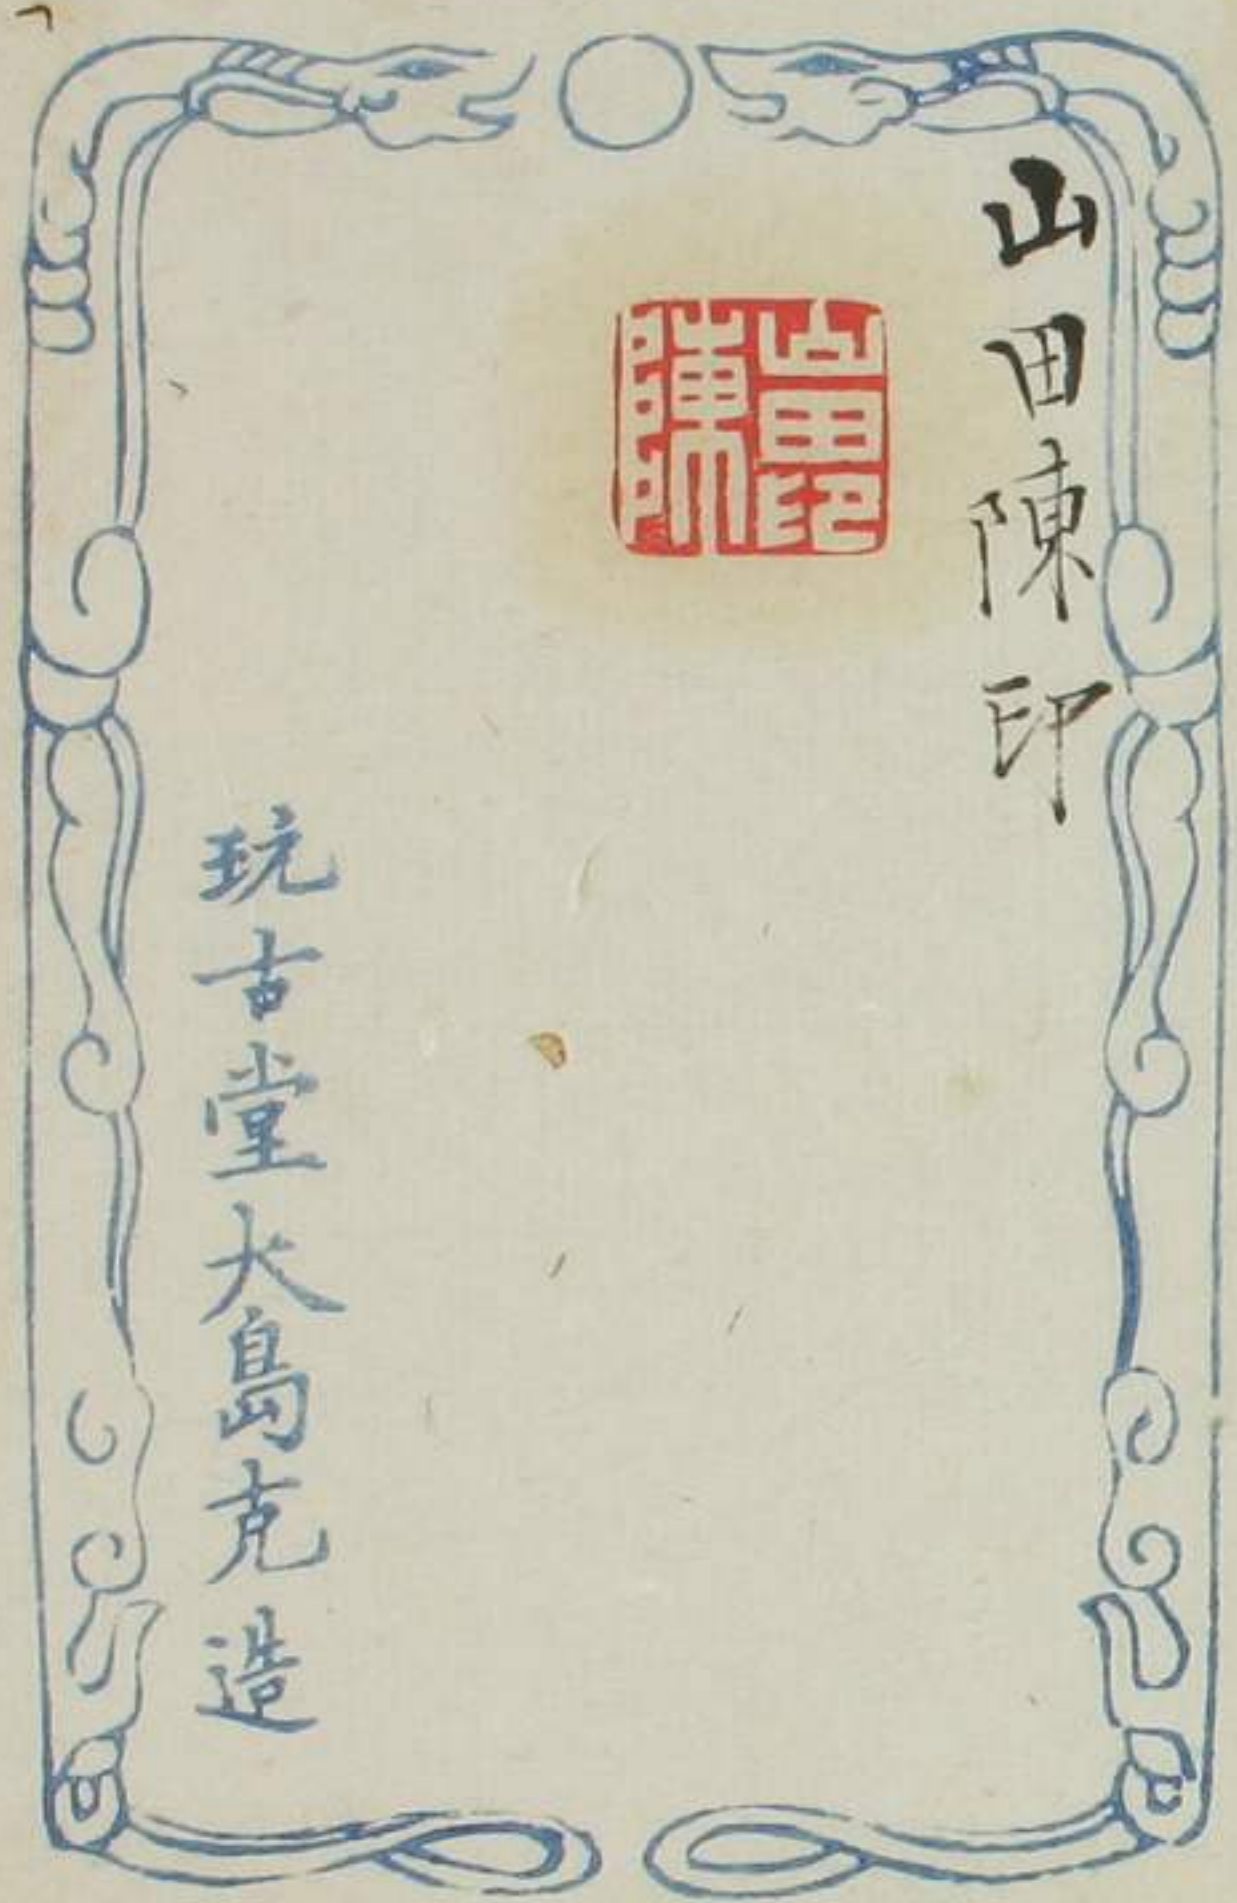 山田陳印
山田印陳
玩古堂大島克造